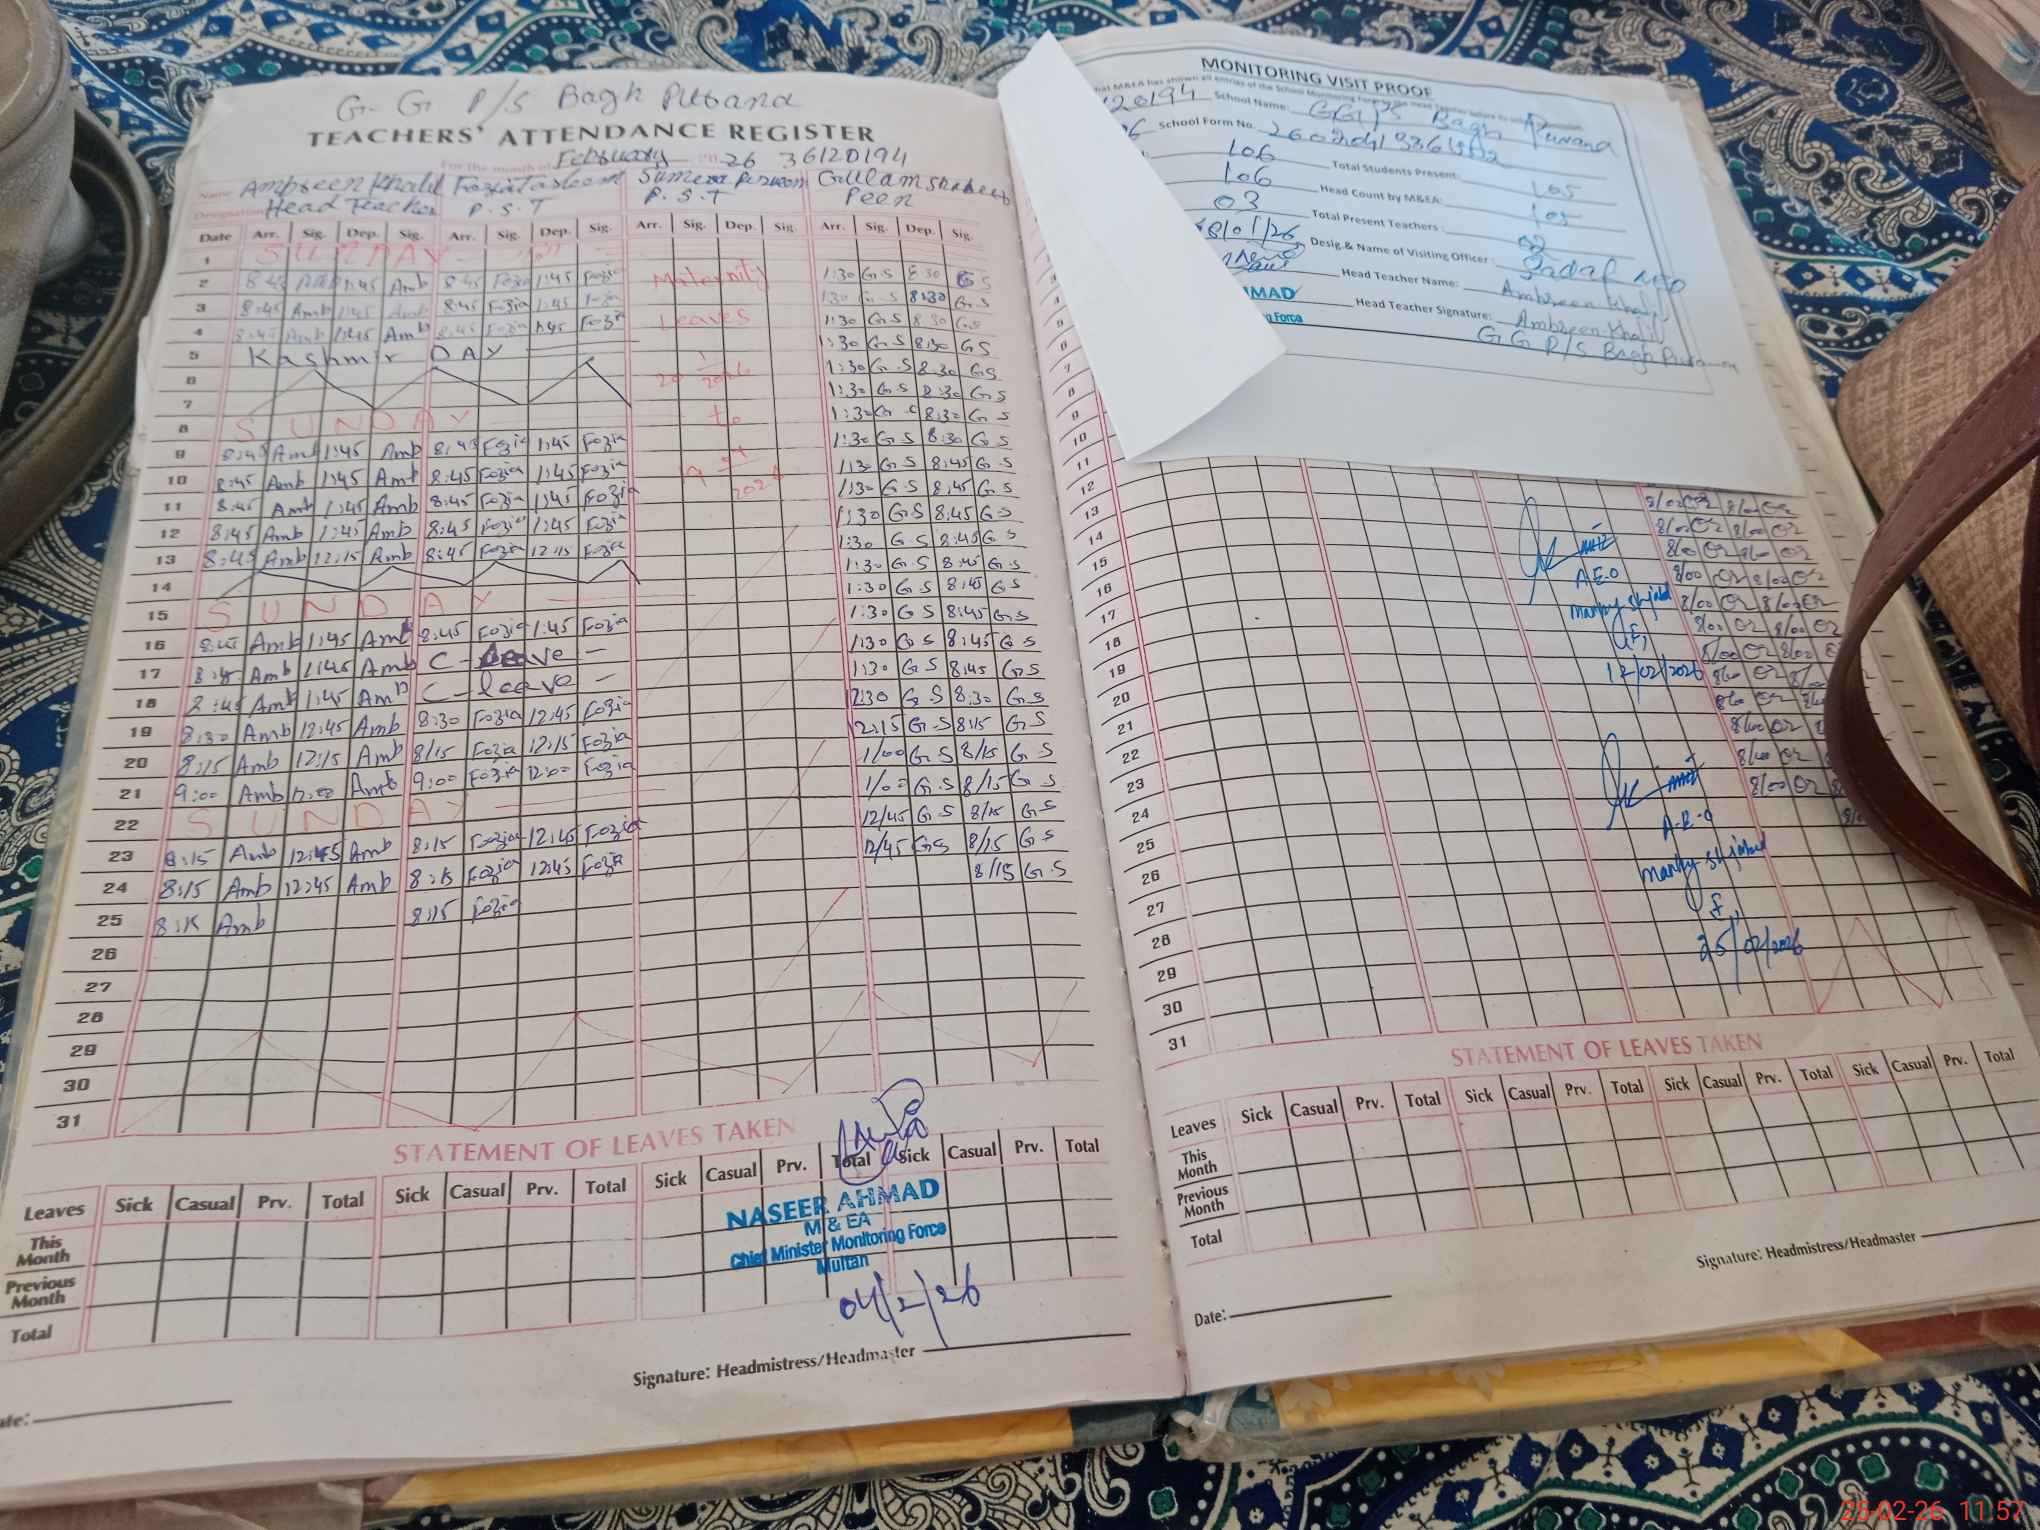 G. G P/S Bagh Purana
TEACHERS' ATTENDANCE REGISTER
For the month of February 26 36120194
Name Ambreen Khalil Fozia Tasleem Sumera Gulam
Designation Head Teacher P.S.T P.S.T Peen
Date Arr. Sig. Dep. Sig. Arr. Sig. Dep. Sig. Arr. Sig. Dep. Sig. Arr. Sig. Dep. Sig.
1 SUNDAY
2 8:45 Amb 1:45 Amb 8:45 Fozia 1:45 Fozia Maternity 1:30 G.S 8:30 G S
3 8:45 Amb 1:45 Amb 8:45 Fozia 1:45 Fozia 1:30 G.S 8:30 G.S
4 8:45 Amb 1:45 Amb 8:45 Fozia 1:45 Fozia Leaves 1:30 G.S 8:30 G.S
5 Kashmir DAY 1:30 G.S 8:30 GS
6 1:30 G.S 8:30 GS
7 1:30 G.S 8:30 G.S
8 SUNDAY to 1:30 G.S 8:30 G S
9 8:45 Amb 1:45 Amb 8:45 Fozia 1:45 Fozia 1:30 G S 8:30 G S
10 8:45 Amb 1:45 Amb 8:45 Fozia 1:45 Fozia 1:30 G S 8:45 G.S
11 8:45 Amb 1:45 Amb 8:45 Fozia 1:45 Fozia 1:30 G.S 8:45 G S
12 8:45 Amb 1:45 Amb 8:45 Fozia 1:45 Fozia 1:30 G.S 8:45 G S
13 8:45 Amb 12:15 Amb 8:45 Fozia 12:15 Fozia 1:30 G.S 8:45 G S
14 1:30 G.S 8:45 G.S
15 SUNDAY 1:30 G S 8:45 G.S
16 8:45 Amb 1:45 Amb 8:45 Fozia 1:45 Fozia 1:30 G S 8:45 G.S
17 8:45 Amb 1:45 Amb C - Leave - 1:30 G S 8:45 G S
18 8:45 Amb 1:45 Amb C - leave - 1:30 G S 8:45 G.S
19 8:30 Amb 12:45 Amb 8:30 Fozia 12:45 Fozia 12:30 G.S 8:30 G.S
20 8:15 Amb 12:15 Amb 8/15 Fozia 12:15 Fozia 12:15 G.S 8:15 G S
21 9:00 Amb 12:00 Amb 9:00 Fozia 12:00 Fozia 1/00 G.S 8/15 G S
22 SUNDAY 1/00 G.S 8/15 G S
23 8:15 Amb 12:45 Amb 8:15 Fozia 12:45 Fozia 12/45 G.S 8/15 G S
24 8:15 Amb 12:45 Amb 8:15 Fozia 12:45 Fozia 12/45 GS 8/15 G S
25 8:15 Amb 8:15 Fozia 8/15 G.S
26
27
28
29
30
31
STATEMENT OF LEAVES TAKEN
Leaves Sick Casual Prv. Total Sick Casual Prv. Total Sick Casual Prv. Total Sick Casual Prv. Total
This Month
Previous Month
Total
NASEER AHMAD
M & EA
Chief Minister Monitoring Force
Multan
04/2/26
Signature: Headmistress/Headmaster
MONITORING VISIT PROOF
School Name: GGPS Bagh Purana
School Form No.
106 Total Students Present: 105
106 Head Count by M&EA: 105
03 Total Present Teachers: 02
Desig.& Name of Visiting Officer: Sadaf AEO
Head Teacher Name: Ambreen Khalil
Head Teacher Signature: Ambreen Khalil
G G P/S Bagh Purana
6
7
8
9
10
11
12
13
14
15
16
17
18
19
20
21
22
23
24
25
26
27
28
29
30
31
A.E.O
12/02/2026
A.E.O
25/02/2026
STATEMENT OF LEAVES TAKEN
Leaves Sick Casual Prv. Total Sick Casual Prv. Total Sick Casual Prv. Total Sick Casual Prv. Total
This Month
Previous Month
Total
Signature: Headmistress/Headmaster
Date:
25-02-26 11:57